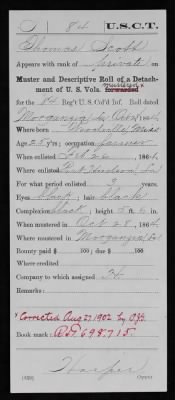 S | 84 | U.S.C.T.
Thomas Scott
Appears with rank of private on
Muster and Descriptive Roll of a Detachment
of U. S. Vols. forwarded mustered
for the 84 Reg't U.S. Col'd Inf. Roll dated
Morganzia La Oct 1864
Where born Woodville, Miss
Age 25 y'rs; occupation farmer
When enlisted Oct 26, 1864
Where enlisted Port Hudson, La
For what period enlisted 3 years.
Eyes black; hair black
Complexion black; height 5 ft. 6 in.
When mustered in Oct 28, 1864
Where mustered in Morganzia, La
Bounty paid $ 100; due $ 100
Where credited
Company to which assigned
Remarks:
Corrected Aug 27 1902 by
Book mark: R&P 698,715
Harper
(339) Copyist.